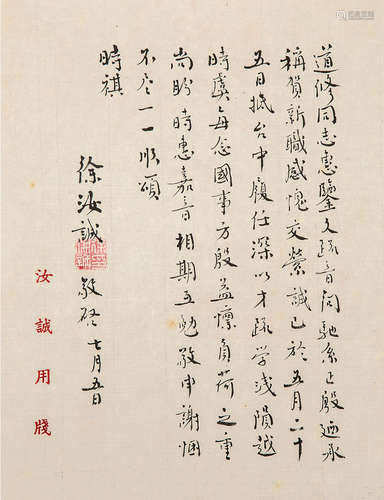 道修同志惠鑒久疏音問馳系正殷迺承
稱賀新職感愧交縈誠已於五月二十
五日抵台中履任深以才疏学浅隕越
時虞每念國事方殷益懔負荷之重
尚盼時惠嘉音相期互勉敬申謝悃
不尽一一順頌
時祺
徐汝誠
敬啓七月五日
汝誠用牋